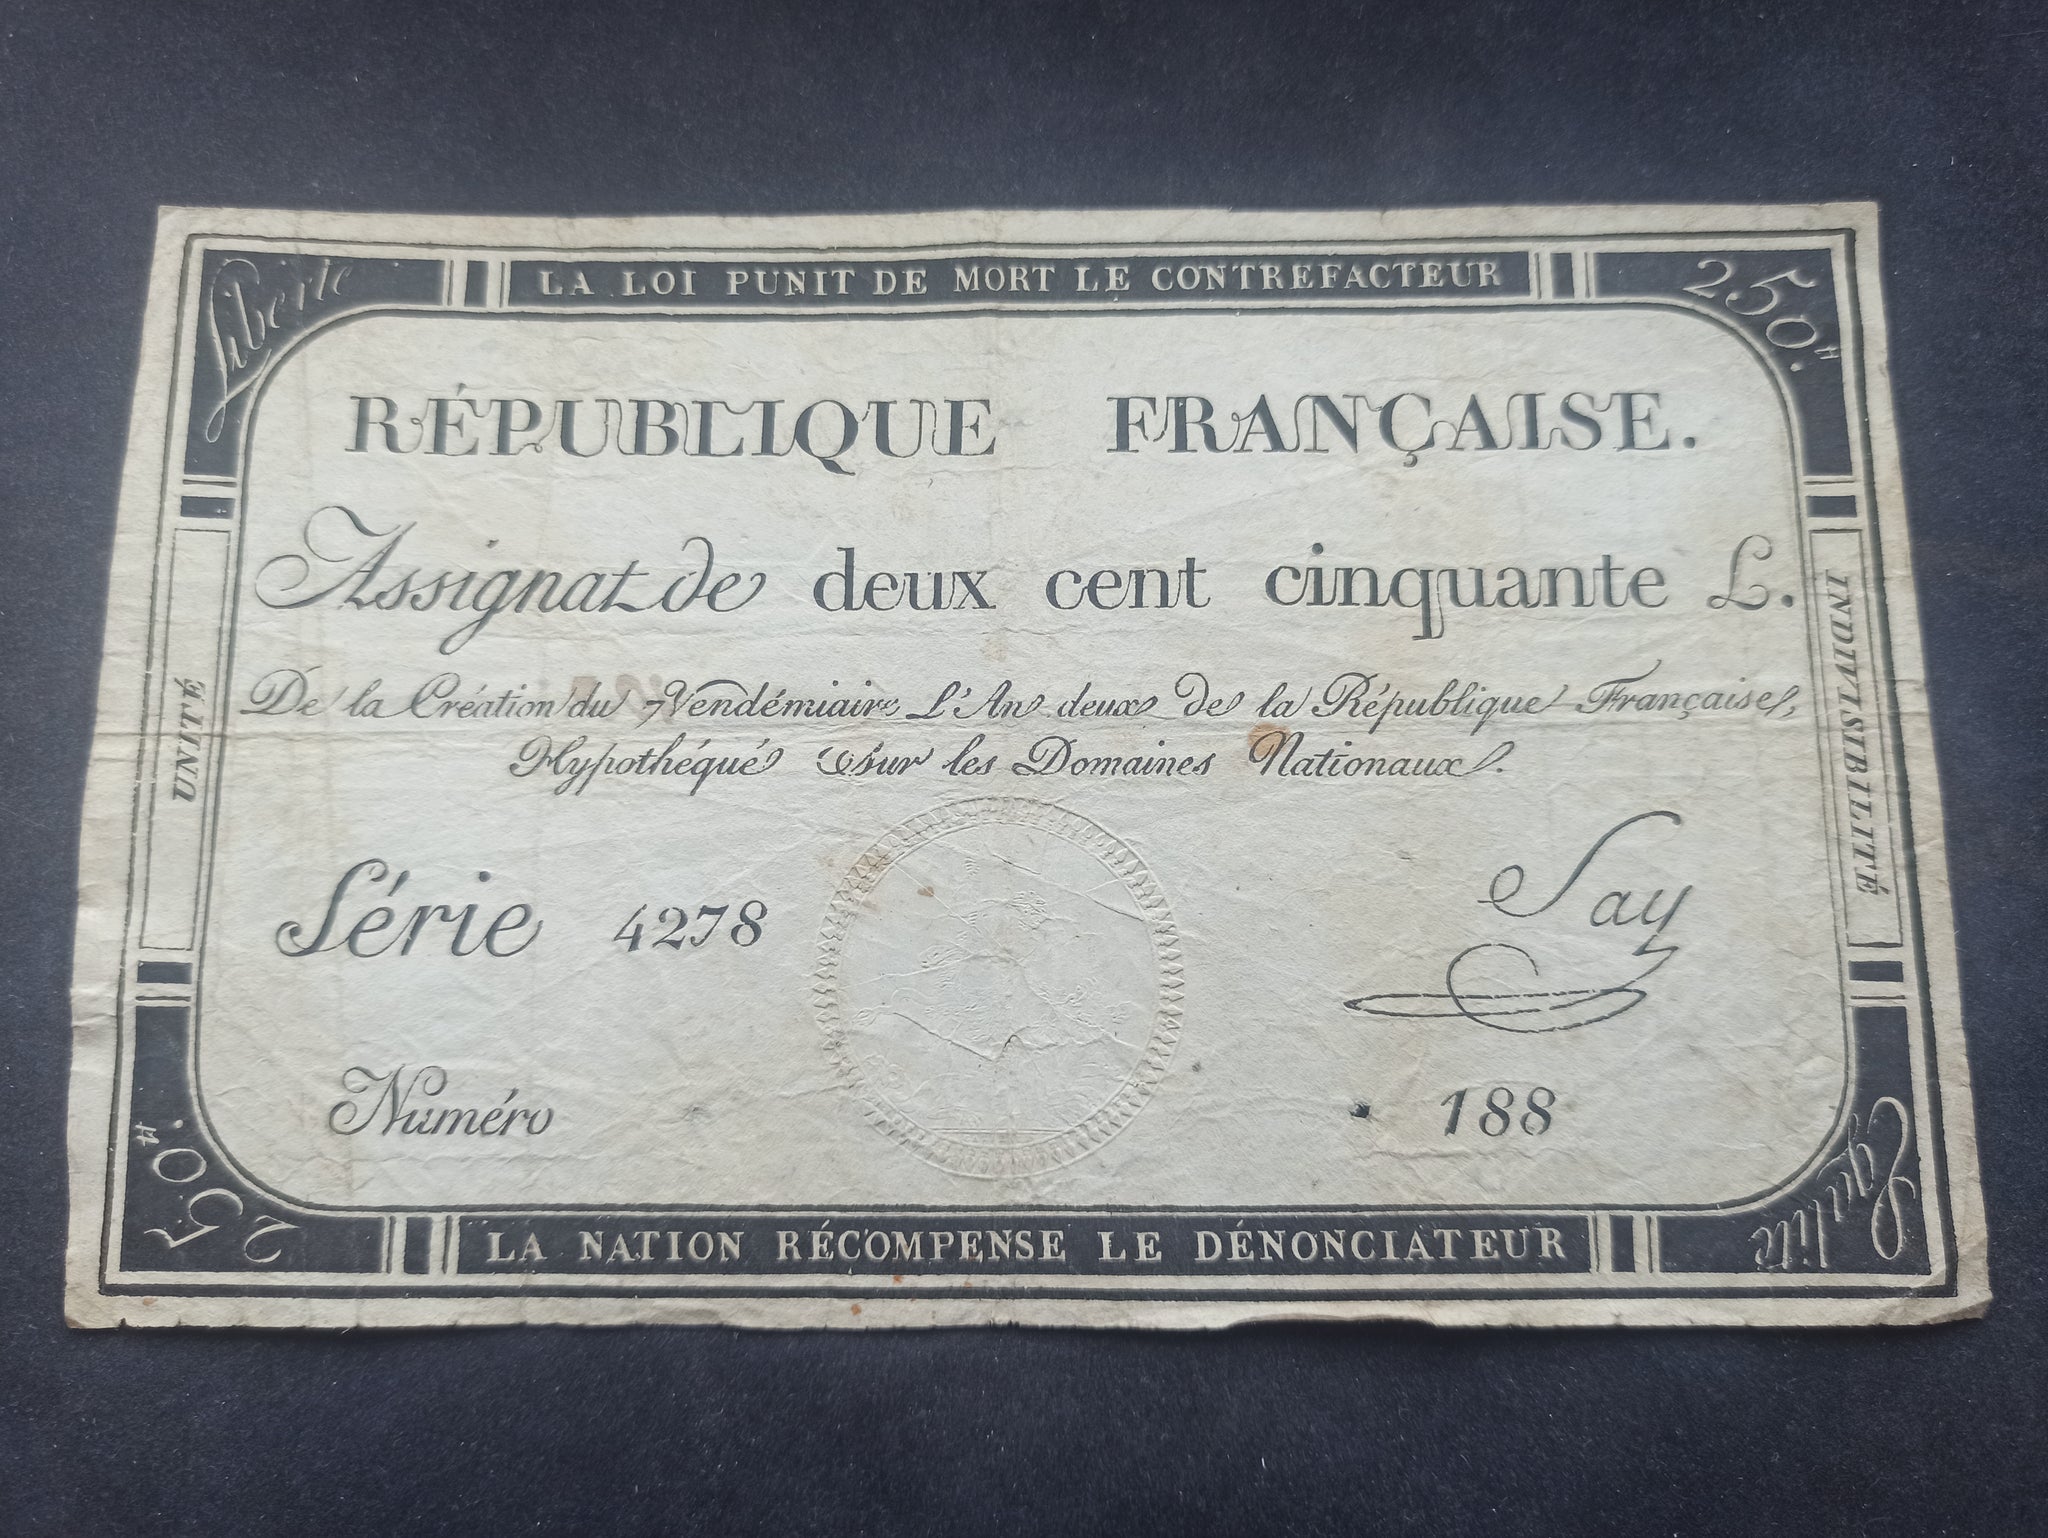 Liberté
LA LOI PUNIT DE MORT LE CONTREFACTEUR
250.₶
RÉPUBLIQUE FRANÇAISE.
Assignat de deux cent cinquante L.
De la Création du 7 Vendémiaire L'An deux de la République Française,
Hypothéqué sur les Domaines Nationaux.
UNITÉ
INDIVISIBILITÉ
Série 4278
Say
Numéro 188
250.₶
LA NATION RÉCOMPENSE LE DÉNONCIATEUR
Egalité